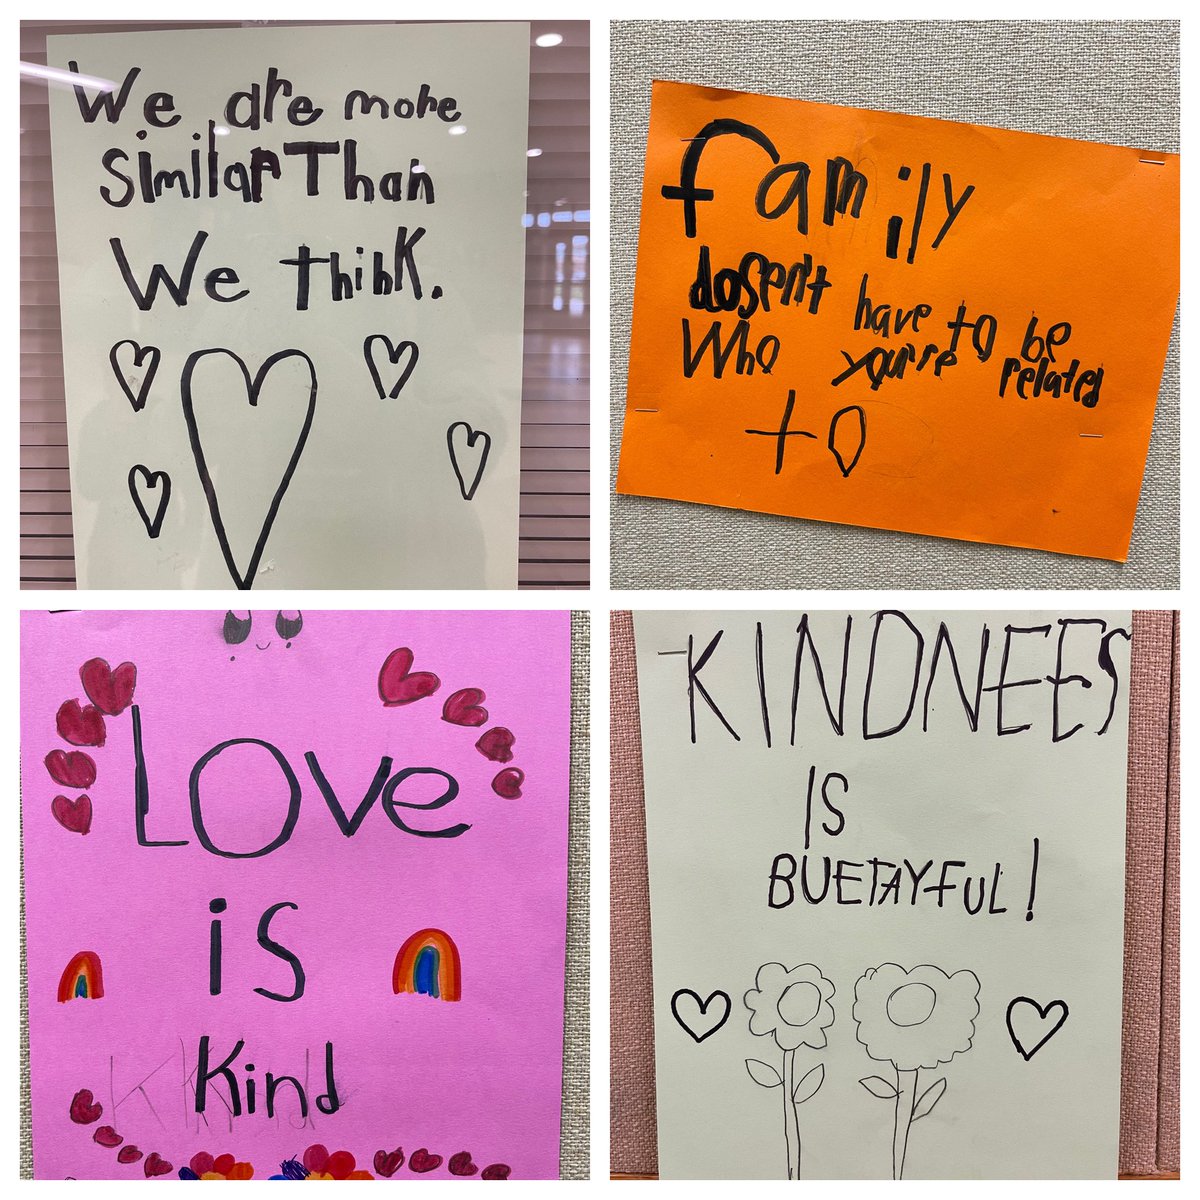 We are more
similar Than
We think.
family
dosen't have to be
Who your're related
to
Love
is
Kind
KINDNEES
IS
BUETAYFUL!